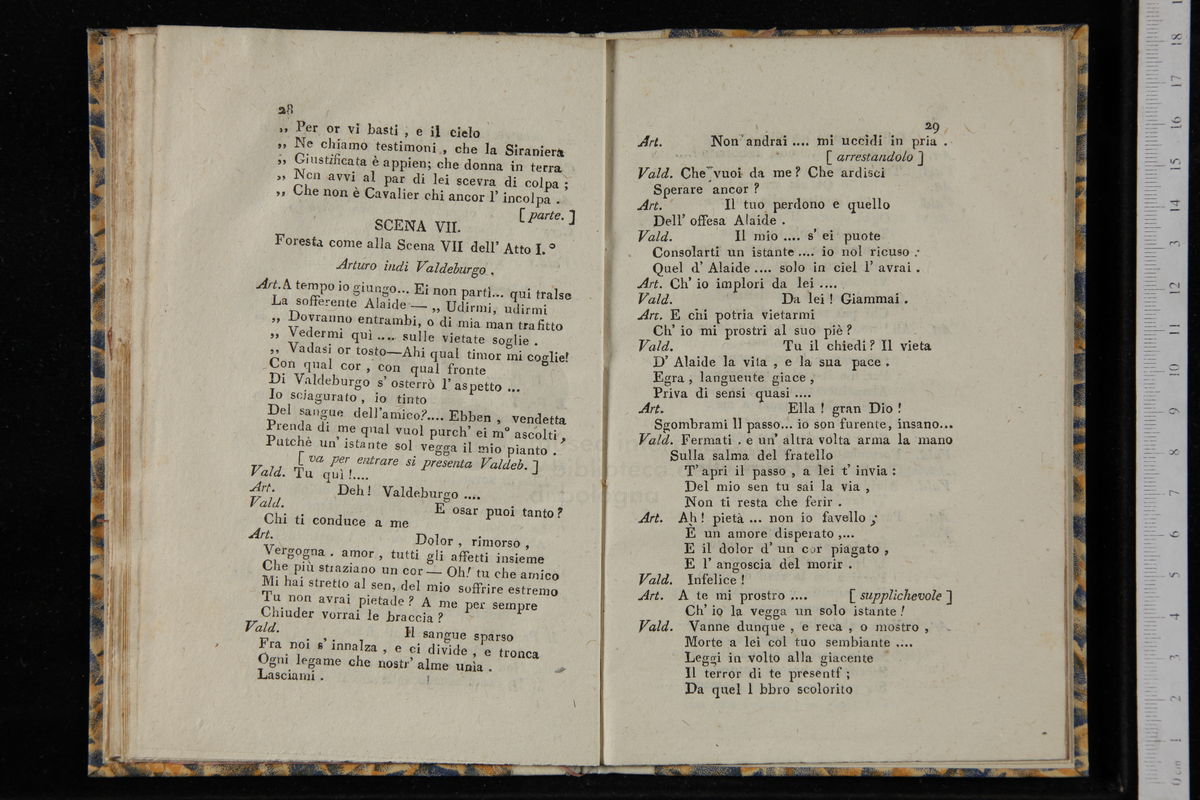 28
„ Per or vi basti , e il cielo
„ Ne chiamo testimoni , che la Siraniera
„ Giustificata è appien; che donna in terra
„ Non avvi al par di lei scevra di colpa ;
„ Che non è Cavalier chi ancor l' incolpa .
[ parte. ]
SCENA VII.
Foresta come alla Scena VII dell' Atto I.°
Arturo indi Valdeburgo .
Art. A tempo io giungo... Ei non partì... qui tralse
La sofferente Alaide — „ Udirmi, udirmi
„ Dovranno entrambi, o di mia man trafitto
„ Vedermi quì .... sulle vietate soglie .
„ Vadasi or tosto—Ahi qual timor mi coglie!
Con qual cor , con qual fronte
Di Valdeburgo s' osterrò l' aspetto ...
Io sciagurato , io tinto
Del sangue dell'amico?.... Ebben , vendetta
Prenda di me qual vuol purch' ei m° ascolti ,
Putchè un' istante sol vegga il mio pianto .
[ va per entrare si presenta Valdeb. ]
Vald. Tu quì !....
Art. Deh! Valdeburgo ....
Vald. E osar puoi tanto?
Chi ti conduce a me
Art. Dolor , rimorso ,
Vergogna . amor , tutti gli affetti insieme
Che più straziano un cor — Oh! tu che amico
Mi hai stretto al sen, del mio soffrire estremo
Tu non avrai pietade? A me per sempre
Chiuder vorrai le braccia?
Vald. Il sangue sparso
Fra noi s' innalza , e ci divide , e tronca
Ogni legame che nostr' alme unia .
Lasciami .
29
Art. Non andrai .... mi uccidi in pria .
[ arrestandolo ]
Vald. Che vuoi da me? Che ardisci
Sperare ancor ?
Art. Il tuo perdono e quello
Dell' offesa Alaide .
Vald. Il mio .... s' ei puote
Consolarti un istante .... io nol ricuso :
Quel d' Alaide .... solo in ciel l' avrai .
Art. Ch' io implori da lei ....
Vald. Da lei ! Giammai .
Art. E chi potria vietarmi
Ch' io mi prostri al suo piè ?
Vald. Tu il chiedi? Il vieta
D' Alaide la vita , e la sua pace .
Egra , languente giace ,
Priva di sensi quasi ....
Art. Ella ! gran Dio !
Sgombrami Il passo... io son furente, insano...
Vald. Fermati . e un' altra volta arma la mano
Sulla salma del fratello
T' apri il passo , a lei t' invia :
Del mio sen tu sai la via ,
Non ti resta che ferir .
Art. Ah ! pietà ... non io favello ;
È un amore disperato ,...
E il dolor d' un cor piagato ,
E l' angoscia del morir .
Vald. Infelice !
Art. A te mi prostro .... [ supplichevole ]
Ch' io la vegga un solo istante !
Vald. Vanne dunque , e reca , o mostro ,
Morte a lei col tuo sembiante ....
Leggi in volto alla giacente
Il terror di te presentf ;
Da quel l bbro scolorito